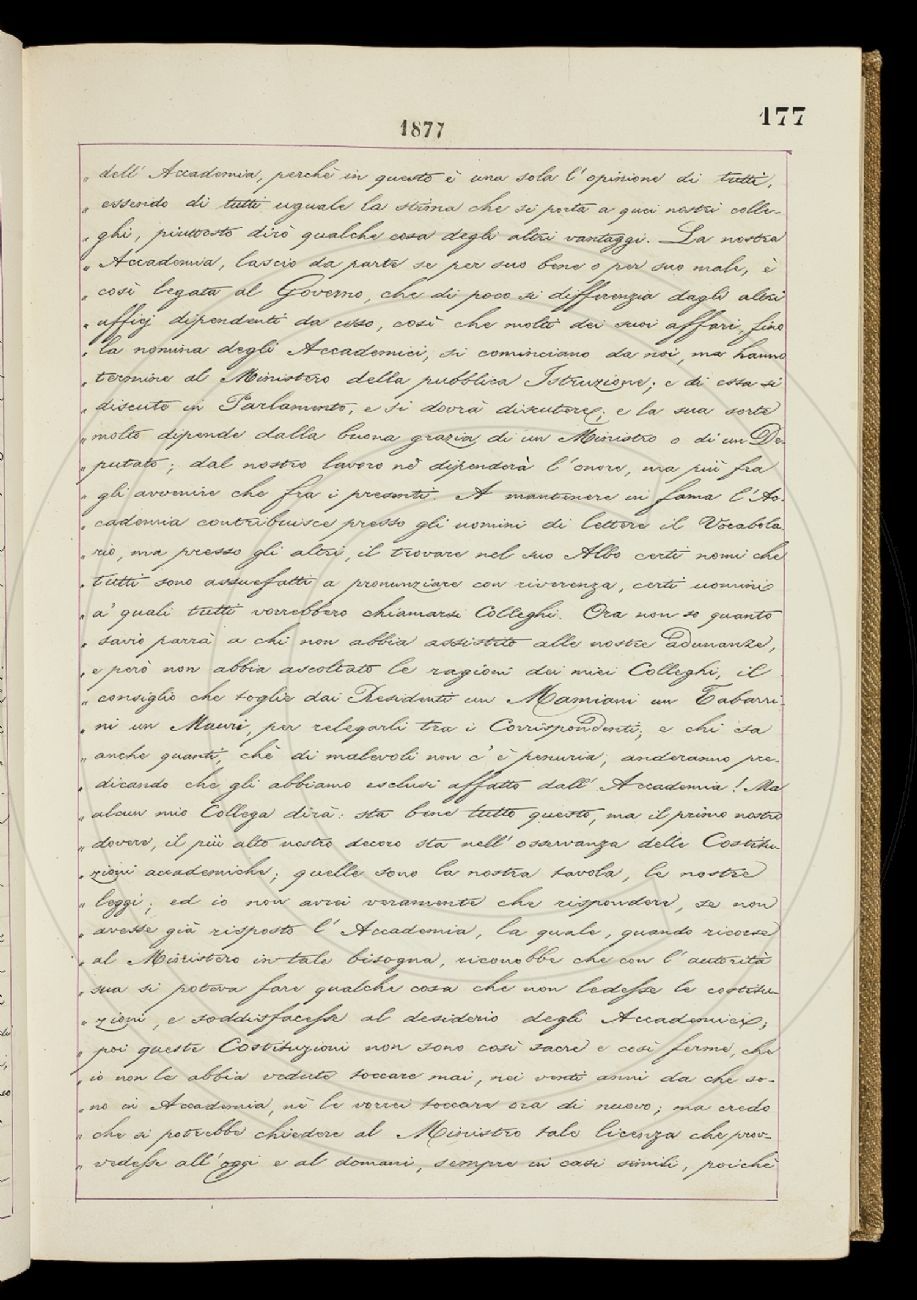 177
1877
„ dell' Accademia, perchè in questo è una sola l'opinione di tutti,
„ essendo di tutti uguale la stima che si porta a quei nostri colle-
„ ghi, piuttosto dirò qualche cosa degli altri vantaggi. La nostra
„ Accademia, lascio da parte se per suo bene o per suo male, è
„ così legata al Governo, che di poco si differenzia dagli altri
„ ufficj dipendenti da esso, così che molti dei suoi affari, fino
„ la nomina degli Accademici, si cominciano da noi, ma hanno
„ termine al Ministero della pubblica Istruzione; e di essa si
„ discute in Parlamento, e si dovrà discutere; e la sua sorte
„ molto dipende dalla buona grazia di un Ministro o di un De-
„ putato; dal nostro lavoro nè dipenderà l'onore, ma più fra
„ gli avvenire che fra i presenti. A mantenere in fama l'Ac-
„ cademia contribuisce presso gli uomini di lettere il Vocabola-
„ rio, ma presso gli altri, il trovare nel suo Albo certi nomi che
„ tutti sono assuefatti a pronunziare con riverenza, certi uomini
„ a' quali tutti vorrebbero chiamarsi Colleghi. Ora non so quanto
„ savio parrà a chi non abbia assistito alle nostre adunanze,
„ e però non abbia ascoltato le ragioni dei miei Colleghi, il
„ consiglio che toglie dai Residenti un Mamiani un Tabarri-
„ ni un Mauri, per relegarli tra i Corrispondenti; e chi sa
„ anche quanti, chè di malevoli non c'è penuria, anderanno pre-
„ dicando che gli abbiamo esclusi affatto dall'Accademia! Ma
„ alcun mio Collega dirà: sta bene tutto questo, ma il primo nostro
„ dovere, il più alto nostro decoro sta nell'osservanza delle Costitu-
„ zioni accademiche; quelle sono la nostra tavola, le nostre
„ leggi; ed io non avrei veramente che rispondere, se non
„ avesse già risposto l'Accademia, la quale, quando ricorse
„ al Ministero in tale bisogna, riconobbe che con l'autorità
„ sua si poteva fare qualche cosa che non ledesse le costitu-
„ zioni, e soddisfacesse al desiderio degli Accademici;
„ poi queste Costituzioni non sono così sacre e così ferme, che
„ io non le abbia vedute toccare mai, nei venti anni da che so-
„ no in Accademia, nè le vorrei toccare ora di nuovo; ma credo
„ che si potrebbe chiedere al Ministro tale licenza che prov-
„ vedesse all'oggi e al domani, sempre in casi simili, poichè